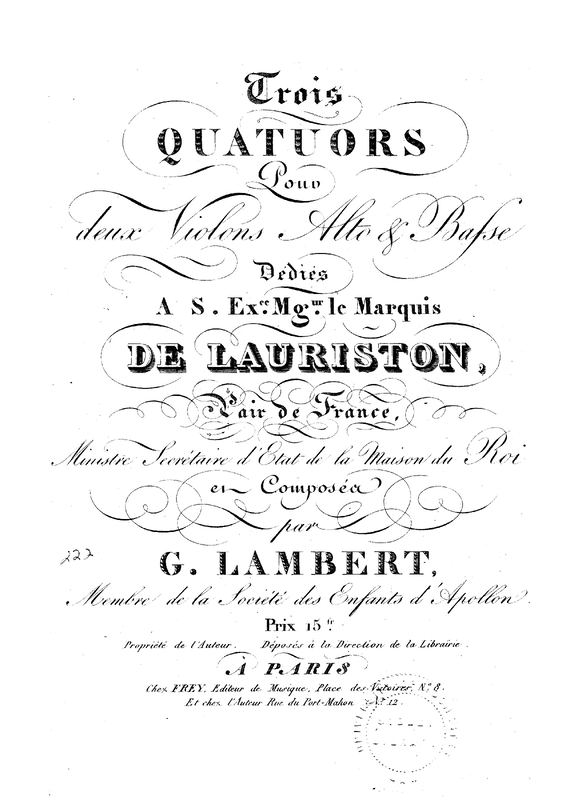 Trois
QUATUORS
Pour
deux Violons Alto & Basse
Dédiés
A S. Ex.ce Mg.ur le Marquis
DE LAURISTON,
Pair de France,
Ministre Secrétaire d'Etat de la Maison du Roi
et Composés
par
G. LAMBERT,
222
Membre de la Société des Enfants d'Apollon.
Prix 15 fr
Propriété de l'Auteur. Déposés à la Direction de la Librairie.
À PARIS
Chez FREY, Editeur de Musique, Place des Victoires, N.º 8.
Et chez l'Auteur Rue du Port-Mahon N.º 12.